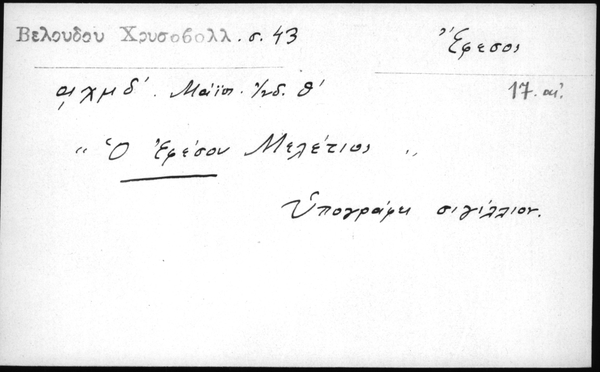 Βελουδου Χρυσοβολλ. σ. 43
Ἔφεσος
αχμδ΄. Μαΐῳ. ἰνδ. θ΄
17. αἰ.
"Ὁ Ἐφέσου Μελέτιος"
Ὑπογράφει σιγίλλιον.